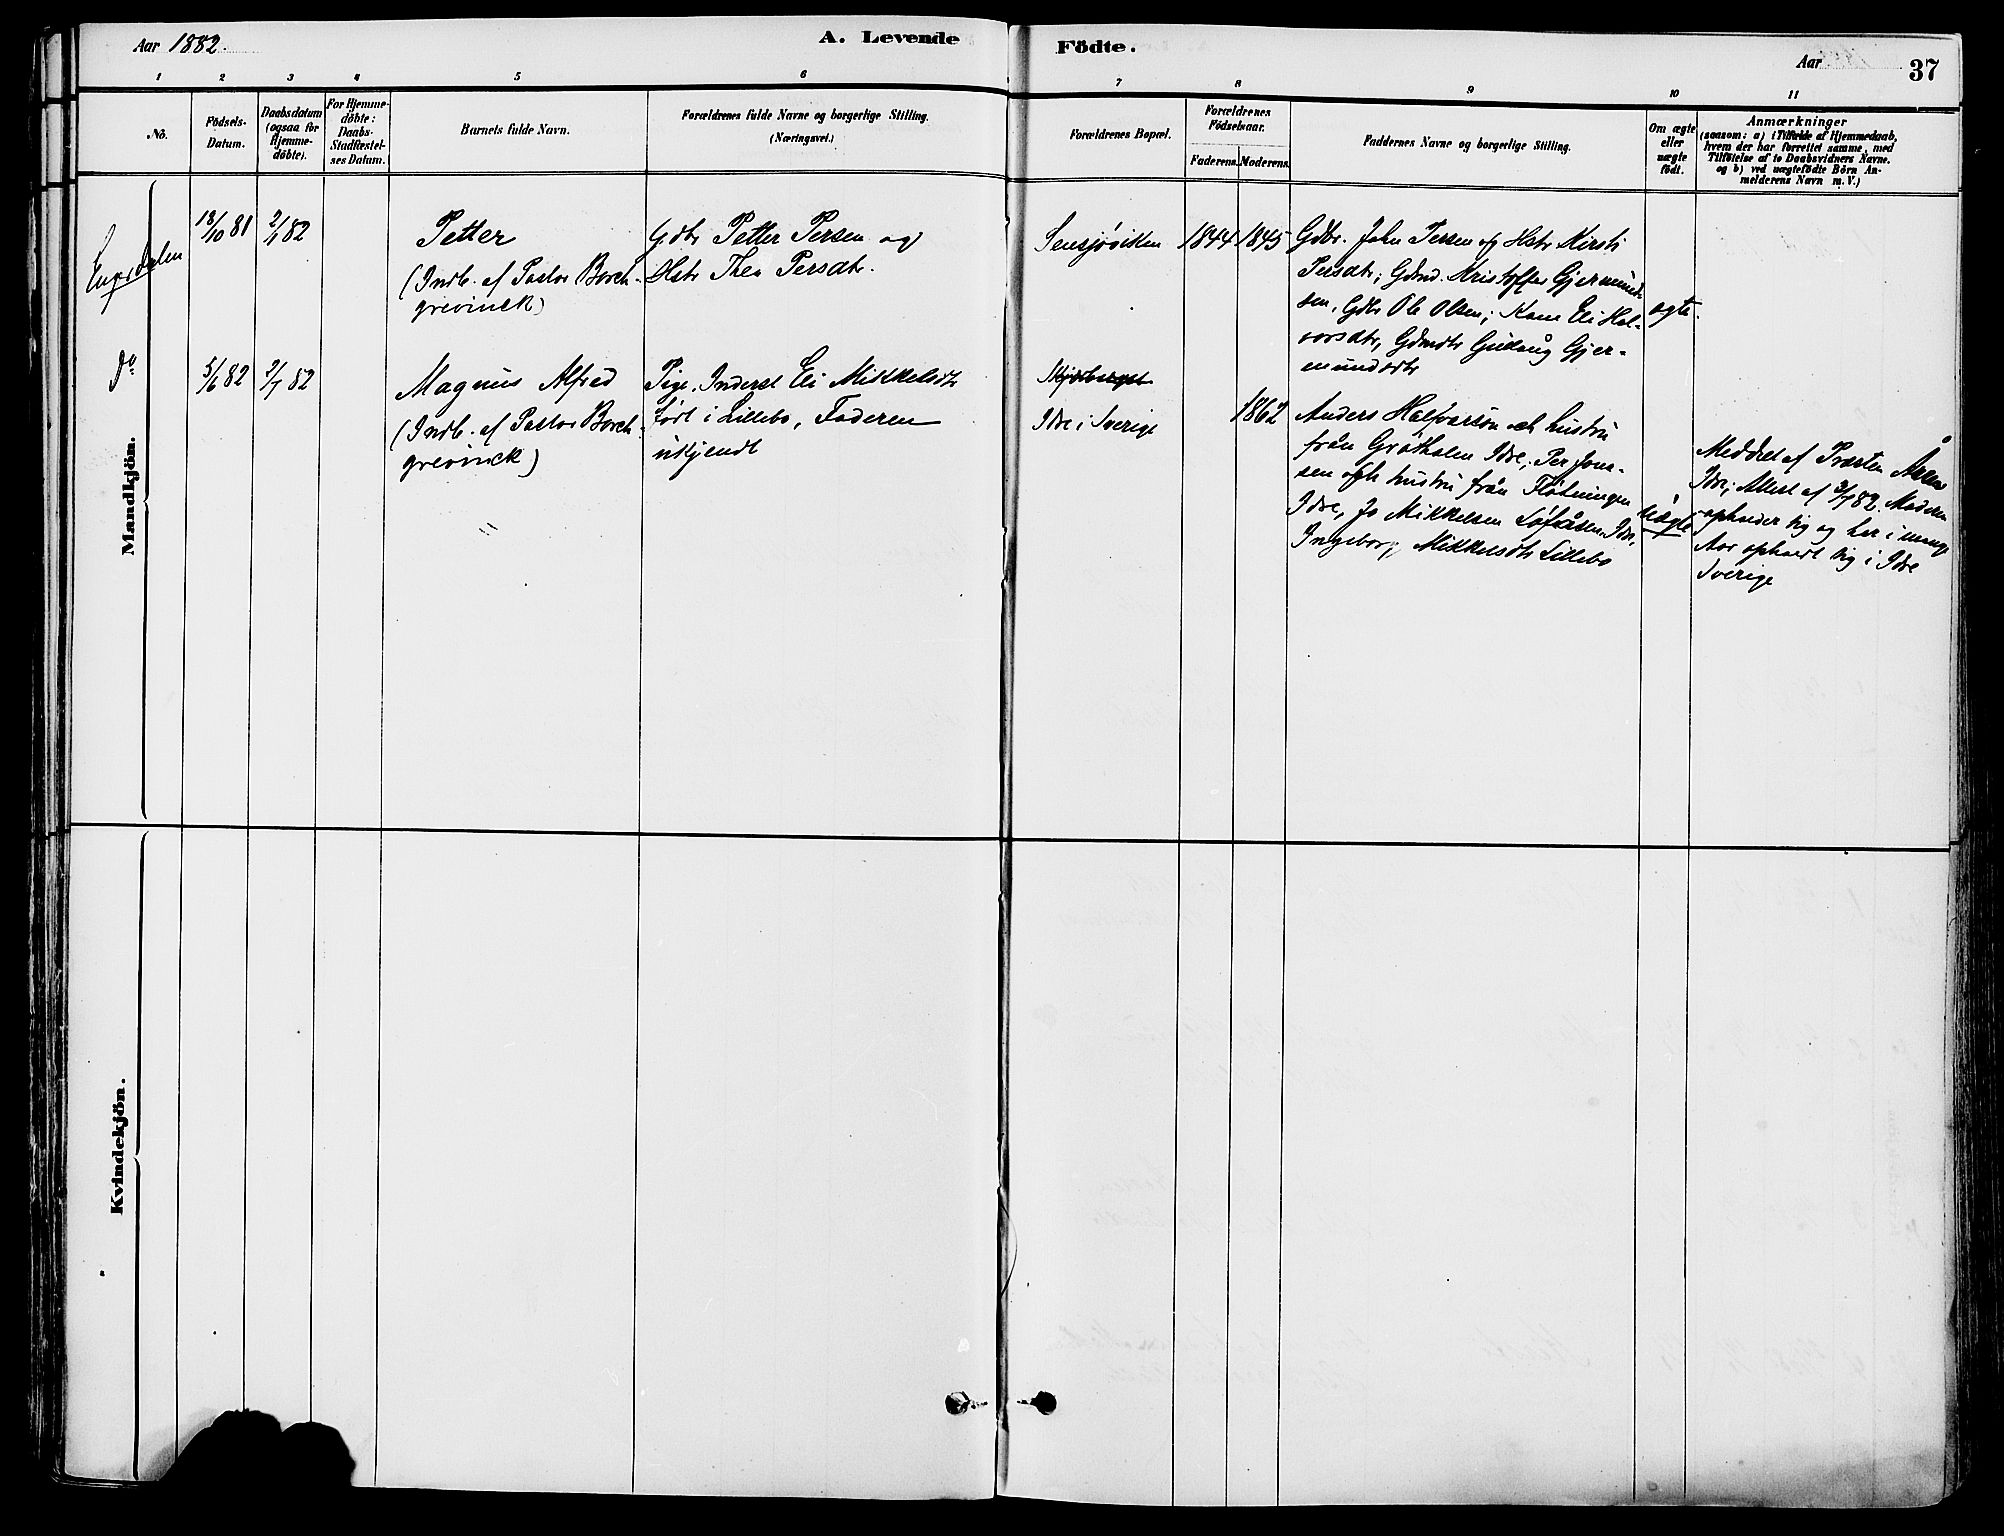 Aar 1882.
A. Levende Födte.
Aar
37
1 2 3 4 5 6 7 8 9 10 11
No.
Födsels-
Datum.
Daabsdatum
(ogsaa for
Hjemme-
döbte).
For Hjemme-
döbte:
Daabs-
Stadfæstel-
ses Datum.
Barnets fulde Navn.
Forældrenes fulde Navne og borgerlige Stilling.
(Næringsvei.)
Forældrenes Bopæl.
Forældrenes
Födselsaar.
Faderens. Moderens.
Faddernes Navne og borgerlige Stilling.
Om ægte
eller
uægte
födt.
Anmærkninger
(saasom: a) i Tilfælde af Hjemmedaab,
hvem der har forrettet samme, med
Tilföielse af to Daabsvidners Navne.
og b) ved uægtefödte Börn An-
melderens Navn m. V.)
Mandkjön.
Engerdalen
18/10 81
2/1 82
Petter
(Indb. af Pastor Borch-
grevinck)
Gdbr Petter Persen og
Hstr Thea Persdtr.
Sensjøvisten
1844
1845
Gdbr. John Persen og Hstr Kirsti
Persdtr; Gdmd. Kristoffer Gjermund-
sen, Gdbr Ole Olsen; Kone Eli Hal-
vorsdtr, Gdmdtr Gudaug Gjer-
mundsdtr
ægte.
do
5/6 82
2/7 82
Magnus Alfred
(Indb. af Pastor Borch-
grevinck)
Pige, Inderst Eli Mikkelsdtr
født i Lillebo, Faderen
ukjendt
Idre i Sverige
1862
Anders Halfvarson och hustru
från Grøthalen Idre; Per Jons-
sen och hustru från Fløtningen
Idre, Jo Mikkelsen Løfåsen Idre,
Ingeborg Mikkelsdtr Lillebo
uægte
Meddelt af Præsten Åsen
Idre; Attest af 3/7 82. Moderen
opholder sig og har i mange
Aar opholdt sig i Idre
Sverige
Kvindekjön.